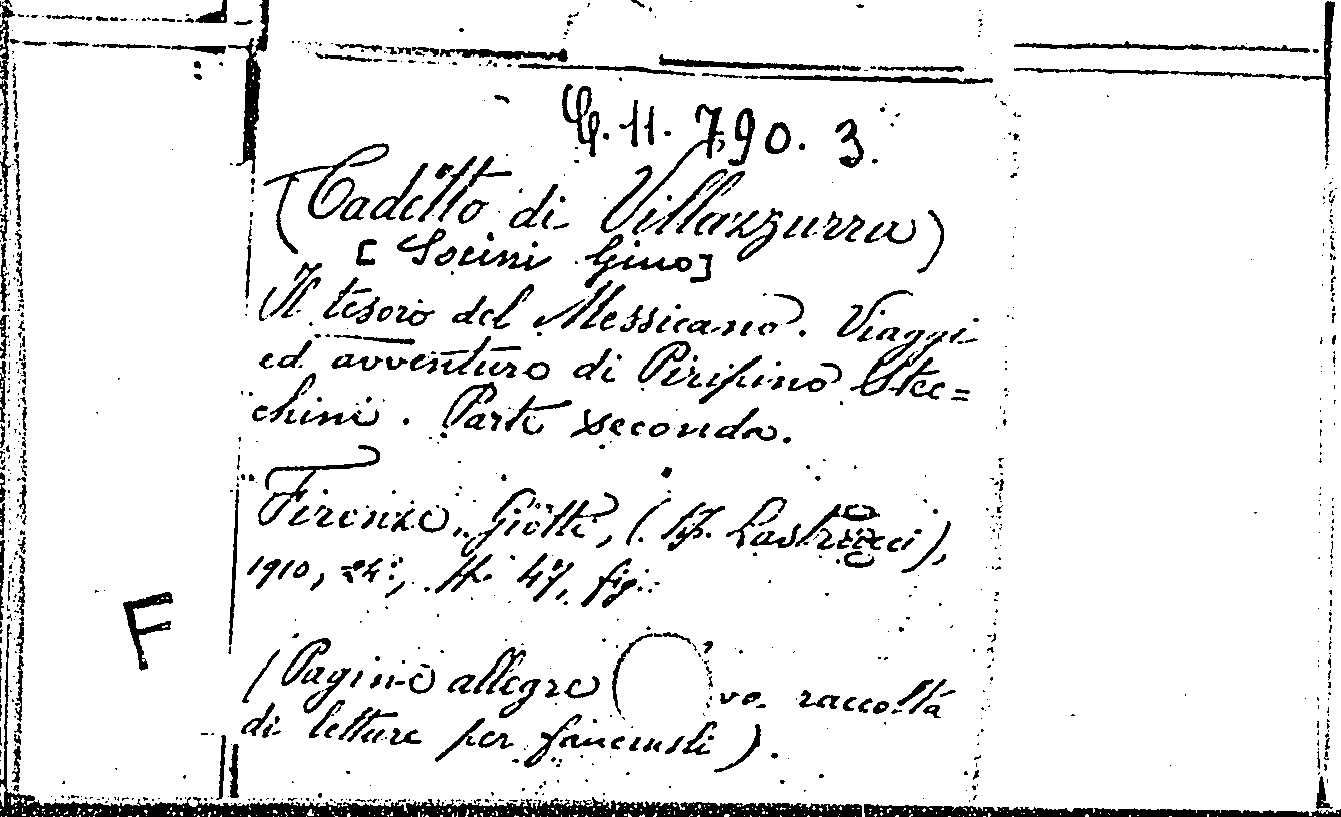 11. 790. 3.
(Cadetto di Villazzurra)
[Socini Gino]
Il tesoro del Messicano. Viaggi
ed avventure di Piripino Stec=
chini. Parte seconda.
Firenze, Giotti, (tip. Lastrucci),
1910, 24°, pp. 47, fig.
F
(Pagine allegre vo. raccolta
di letture per fanciulli).